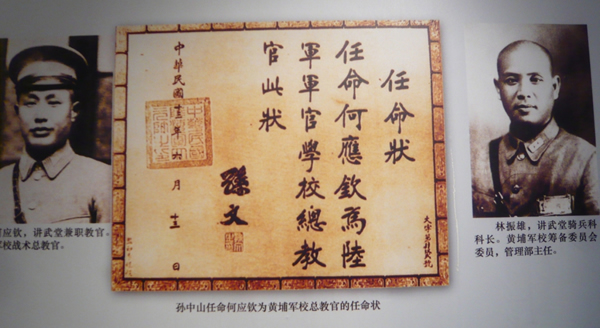 任命狀
任命何應欽為陸
軍軍官學校總教
官此狀
孫文
中華民國十三年六月 日
应钦，讲武堂兼职教官。
校战术总教官。
林振雄，讲武堂骑兵科
科长。黄埔军校筹备委员会
委员，管理部主任。
孙中山任命何应钦为黄埔军校总教官的任命状